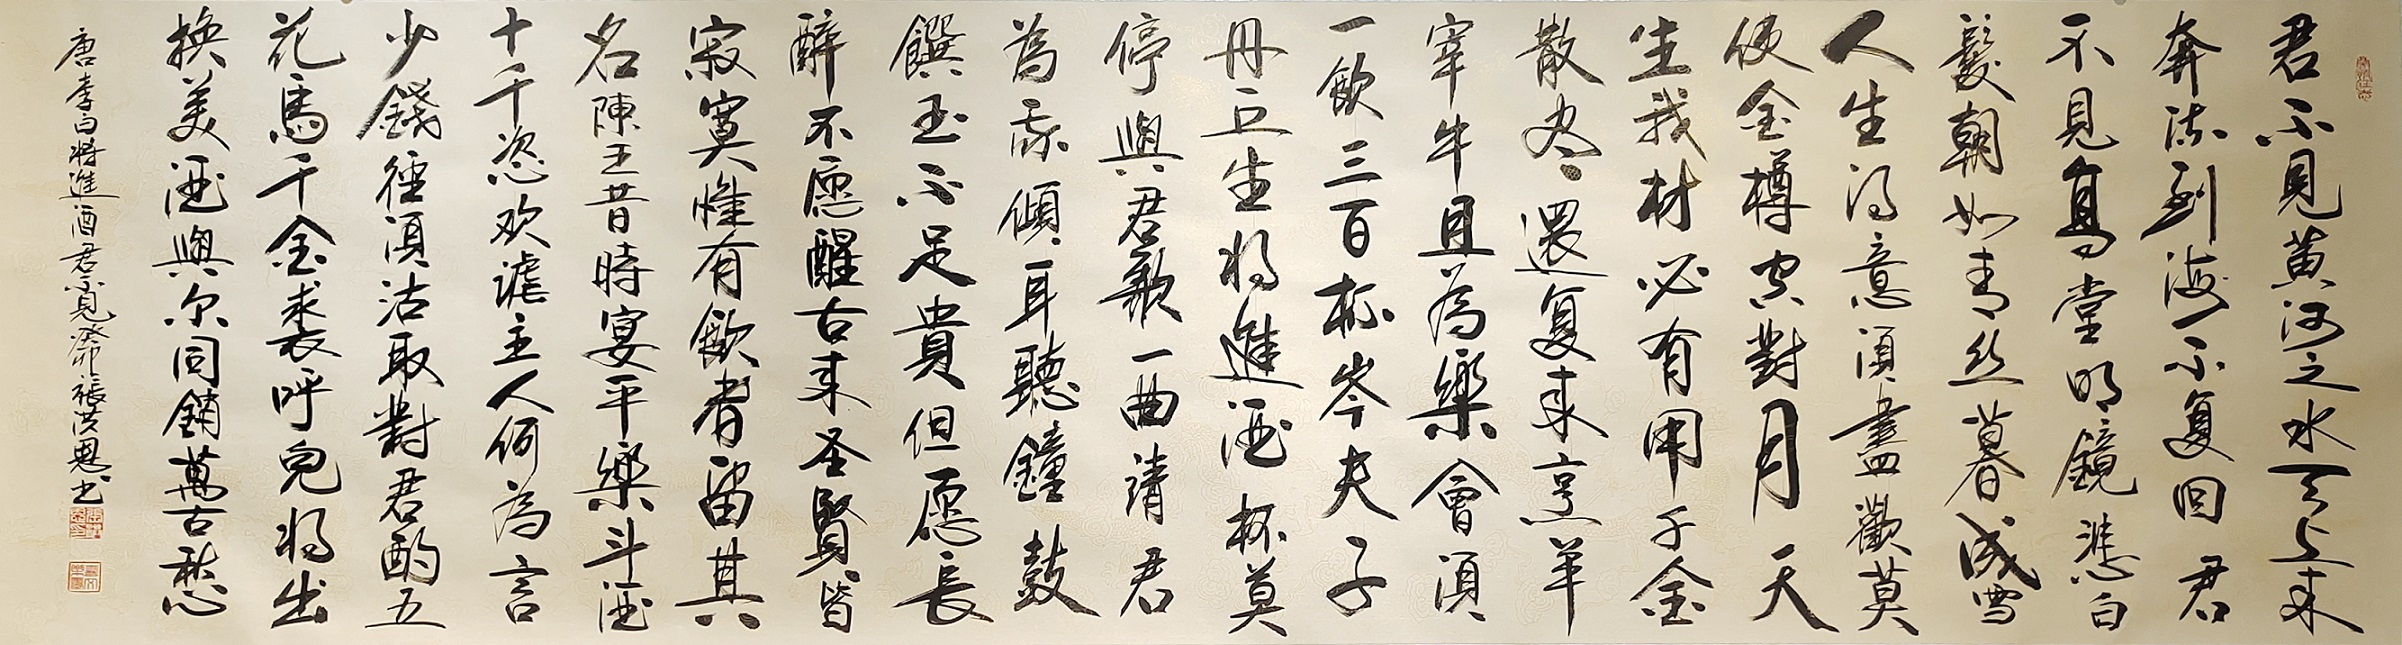 君不見黄河之水天上来
奔流到海不复回君
不見高堂明鏡悲白
髮朝如青丝暮成雪
人生得意須盡歡莫
使金樽空對月天
生我材必有用千金
散尽還复来烹羊
宰牛且為樂會須
一飲三百杯岑夫子
丹丘生将進酒杯莫
停與君歌一曲請君
為我傾耳聽鐘鼓
饌玉不足貴但愿長
醉不愿醒古来圣賢皆
寂寞惟有飲者留其
名陳王昔時宴平樂斗酒
十千恣欢謔主人何為言
少錢徑須沽取對君酌五
花馬千金裘呼兒将出
换美酒與尔同銷萬古愁
唐李白将進酒君不見癸卯張洪恩书